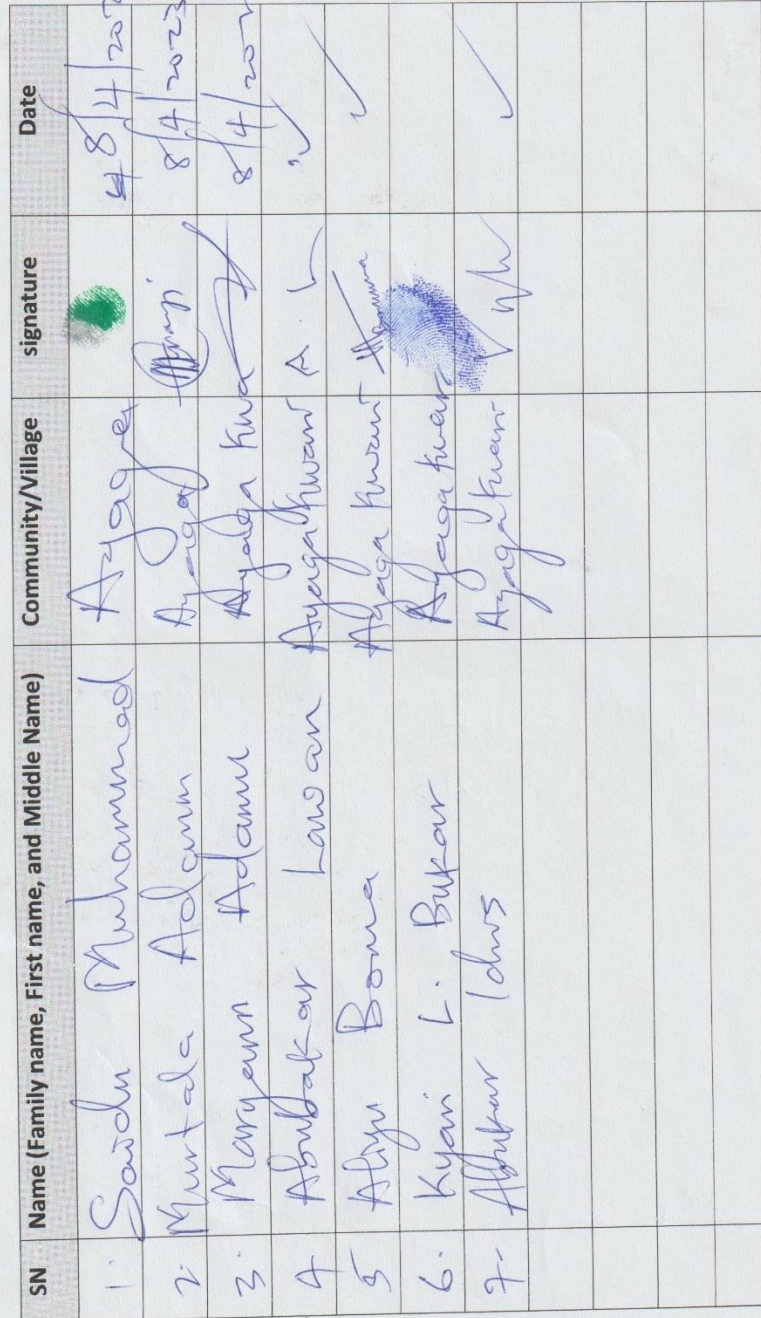 SN Name (Family name, First name, and Middle Name) Community/Village signature Date
1. Saidu Muhammad Ayaga 8/4/202
2. Murtala Adamu Ayaga 8/4/2023
3. Maryam Adamu Ayaga Kwa 8/4/202
4 Abubakar Lawan Ayaga Kwari A. L
5 Aliyu Boma Ayaga Kwari
6. Kyari L. Bukar Ayaga Kwari
7. Abukar Idris Ayaga Kwari